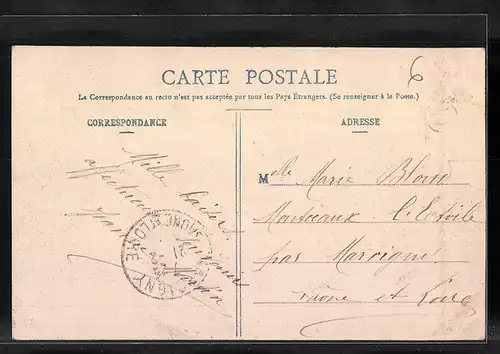 6
CARTE POSTALE
La Correspondance au recto n'est pas acceptée par tous les Pays Étrangers. (Se renseigner à la Poste.)
CORRESPONDANCE
ADRESSE
Mille baisers
affectueux
Jean
Martin
IGNY
SAONE & LOIRE
21
Melle Marie Blanc
Montceaux l'Etoile
par Marcigny
Saône et Loire